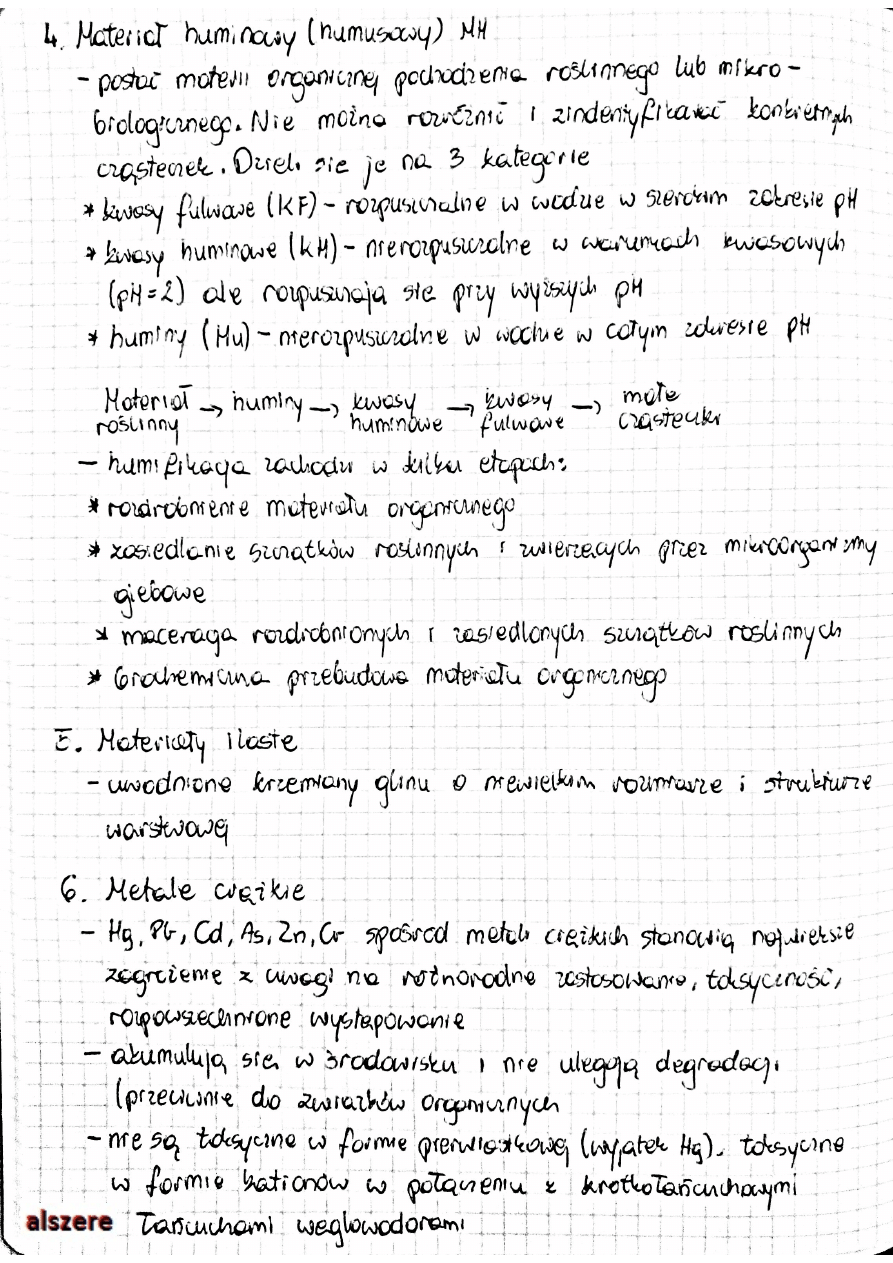 4. Materiał huminowy (humusowy) MH
- postać materii organicznej pochodzenia roślinnego lub mikro-
biologicznego. Nie można rozróżnić i zindentyfikować konkretnych
cząsteczek. Dzieli sie je na 3 kategorie
* kwasy fulwowe (KF) - rozpuszczalne w wodzie w szerokim zakresie pH
* kwasy huminowe (KH) - nierozpuszczalne w warunkach kwasowych
(pH=2) ale rozpuszczają się przy wyższych pH
* huminy (Hu) - nierozpuszczalne w wodzie w całym zakresie pH
Materiał → huminy → kwasy → kwasy → małe
roślinny huminowe fulwowe cząsteczki
- humifikacja zachodzi w kilku etapach:
* rozdrobnienie materiału organicznego
* zasiedlanie szczątków roślinnych i zwierzęcych przez mikroorganizmy
glebowe
* maceracja rozdrobnionych i zasiedlonych szczątków roślinnych
* biochemiczna przebudowa materiału organicznego
5. Materiały ilaste
- uwodnione krzemiany glinu o niewielkim rozmiarze i strukturze
warstwowej
6. Metale ciężkie
- Hg, Pb, Cd, As, Zn, Cr spośród metali ciężkich stanowią największe
zagrożenie z uwagi na różnorodne zastosowanie, toksyczność,
rozpowszechnione występowanie
- akumulują się w środowisku i nie ulegają degradacji
(przeciwnie do związków organicznych
- nie są toksyczne w formie pierwiastkowej (wyjątek Hg). toksyczne
w formie kationów w połączeniu z krótkołańcuchowymi
łańcuchami węglowodorami
alszere